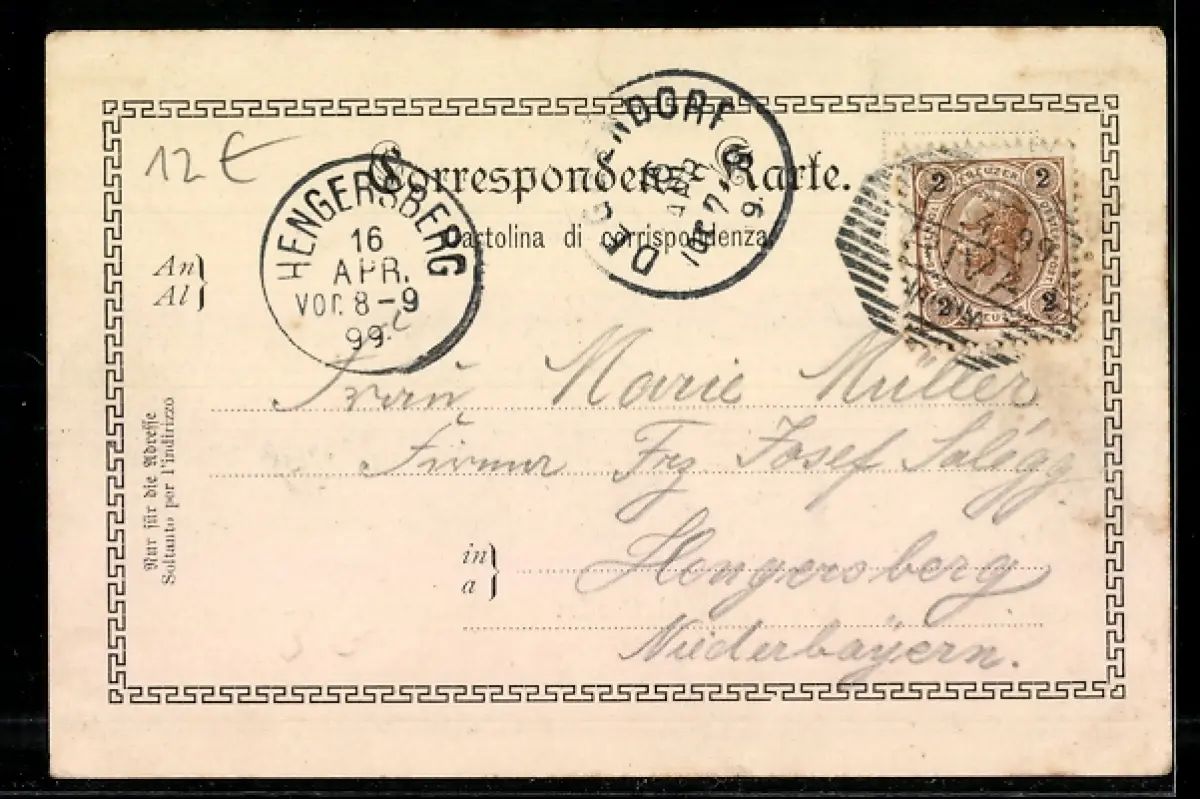 12 €
Correspondenz-Karte.
Cartolina di corrispondenza
An
Al
HENGERSBERG
16
APR.
VOR. 8-9
99
DEGGENDORF
APR
2
KREUZER
2
99
2
2
Frau Marie Müller
Firma Frz Josef
in
a
Hengersberg
Niederbayern.
Nur für die Adresse
Soltanto per l'indirizzo